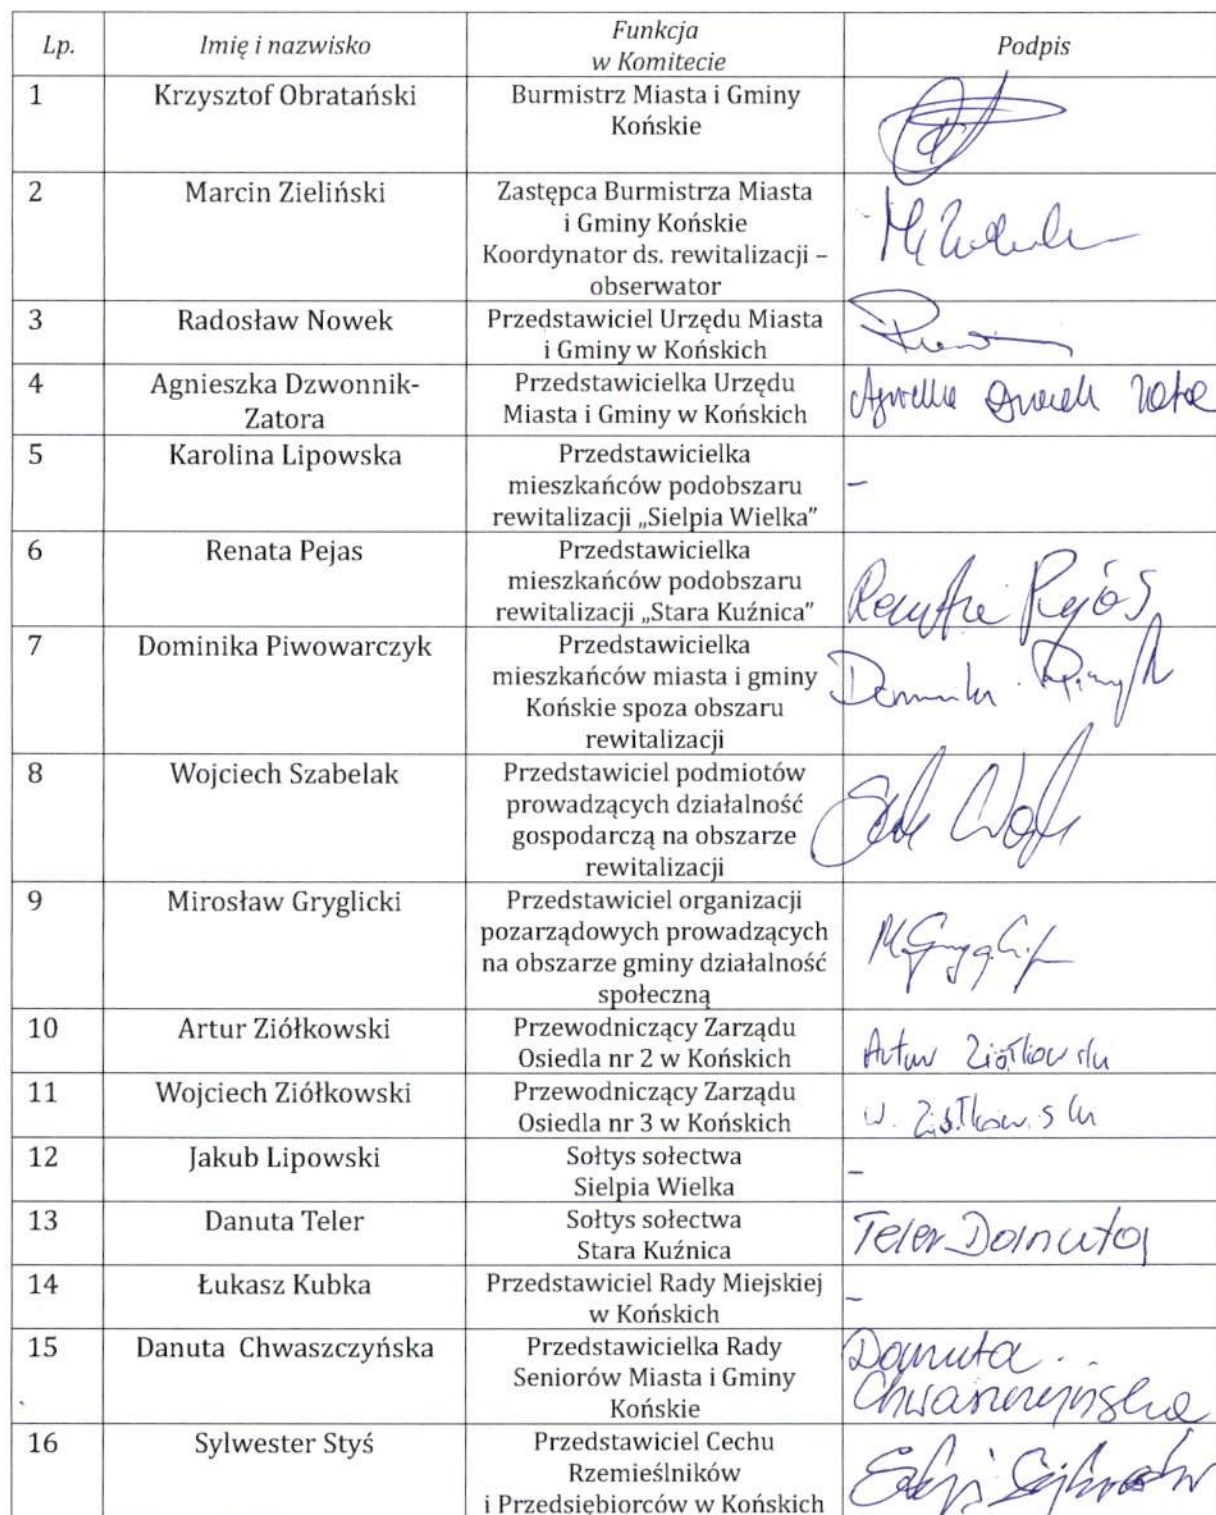 Lp. Imię i nazwisko Funkcja w Komitecie Podpis
1 Krzysztof Obratański Burmistrz Miasta i Gminy
Końskie
2 Marcin Zieliński Zastępca Burmistrza Miasta
i Gminy Końskie
Koordynator ds. rewitalizacji –
obserwator
3 Radosław Nowek Przedstawiciel Urzędu Miasta
i Gminy w Końskich
4 Agnieszka Dzwonnik- Przedstawicielka Urzędu
Zatora Miasta i Gminy w Końskich
5 Karolina Lipowska Przedstawicielka
mieszkańców podobszaru –
rewitalizacji „Sielpia Wielka”
6 Renata Pejas Przedstawicielka
mieszkańców podobszaru
rewitalizacji „Stara Kuźnica” Renata Pejas
7 Dominika Piwowarczyk Przedstawicielka
mieszkańców miasta i gminy Dominika
Końskie spoza obszaru
rewitalizacji
8 Wojciech Szabelak Przedstawiciel podmiotów
prowadzących działalność
gospodarczą na obszarze
rewitalizacji
9 Mirosław Gryglicki Przedstawiciel organizacji
pozarządowych prowadzących
na obszarze gminy działalność
społeczną
10 Artur Ziółkowski Przewodniczący Zarządu
Osiedla nr 2 w Końskich Artur Ziółkowski
11 Wojciech Ziółkowski Przewodniczący Zarządu
Osiedla nr 3 w Końskich W. Ziółkowski
12 Jakub Lipowski Sołtys sołectwa
Sielpia Wielka –
13 Danuta Teler Sołtys sołectwa
Stara Kuźnica Teler Danuta
14 Łukasz Kubka Przedstawiciel Rady Miejskiej
w Końskich –
15 Danuta Chwaszczyńska Przedstawicielka Rady Danuta
Seniorów Miasta i Gminy Chwaszczyńska
Końskie
16 Sylwester Styś Przedstawiciel Cechu
Rzemieślników
i Przedsiębiorców w Końskich